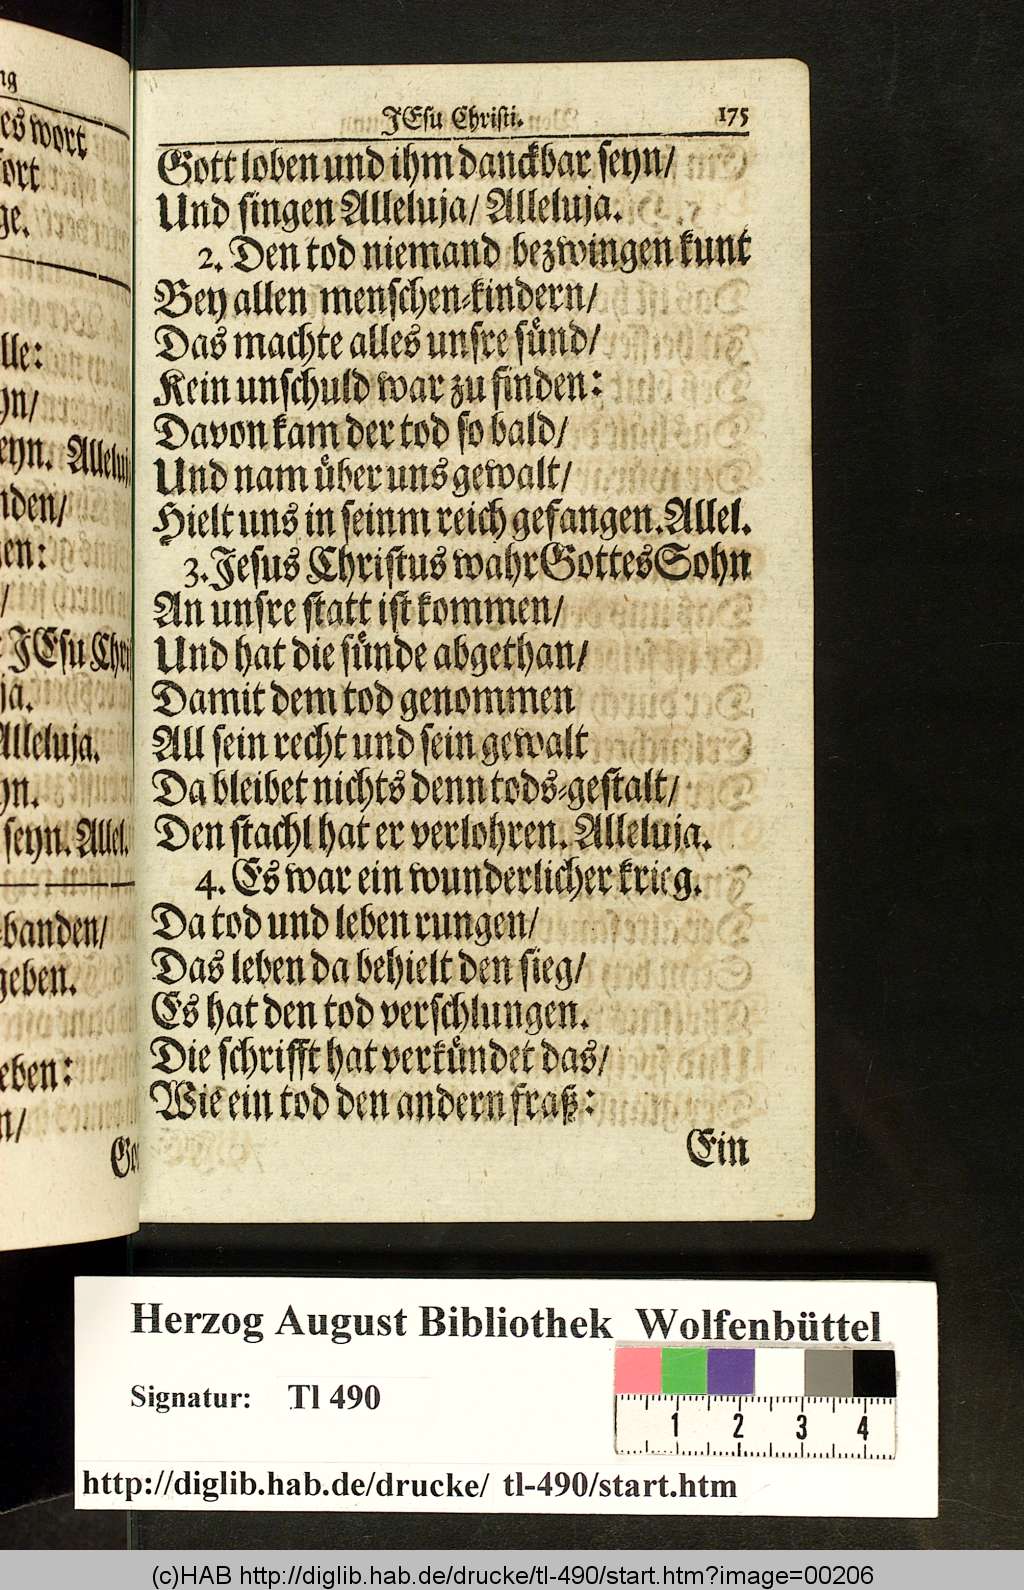 ng
es wort
fort
ge.
lle:
yn/
eyn. Alleluj
nden/
en:
/
JEsu Chri
ja.
Alleluja.
yn.
seyn. Allel.
banden/
geben.
eben:
n/
Go
JEsu Christi. 175
Gott loben und ihm danckbar seyn/
Und singen Alleluja/ Alleluja.
2. Den tod niemand bezwingen kunt
Bey allen menschen-kindern/
Das machte alles unsre sünd/
Kein unschuld war zu finden:
Davon kam der tod so bald/
Und nam über uns gewalt/
Hielt uns in seinm reich gefangen. Allel.
3. Jesus Christus wahr Gottes Sohn
An unsre statt ist kommen/
Und hat die sünde abgethan/
Damit dem tod genommen
All sein recht und sein gewalt
Da bleibet nichts denn tods-gestalt/
Den stachl hat er verlohren. Alleluja.
4. Es war ein wunderlicher krieg.
Da tod und leben rungen/
Das leben da behielt den sieg/
Es hat den tod verschlungen.
Die schrifft hat verkündet das/
Wie ein tod den andern fraß:
Ein
Herzog August Bibliothek Wolfenbüttel
Signatur: Tl 490
1 2 3 4
http://diglib.hab.de/drucke/ tl-490/start.htm
(c)HAB http://diglib.hab.de/drucke/tl-490/start.htm?image=00206